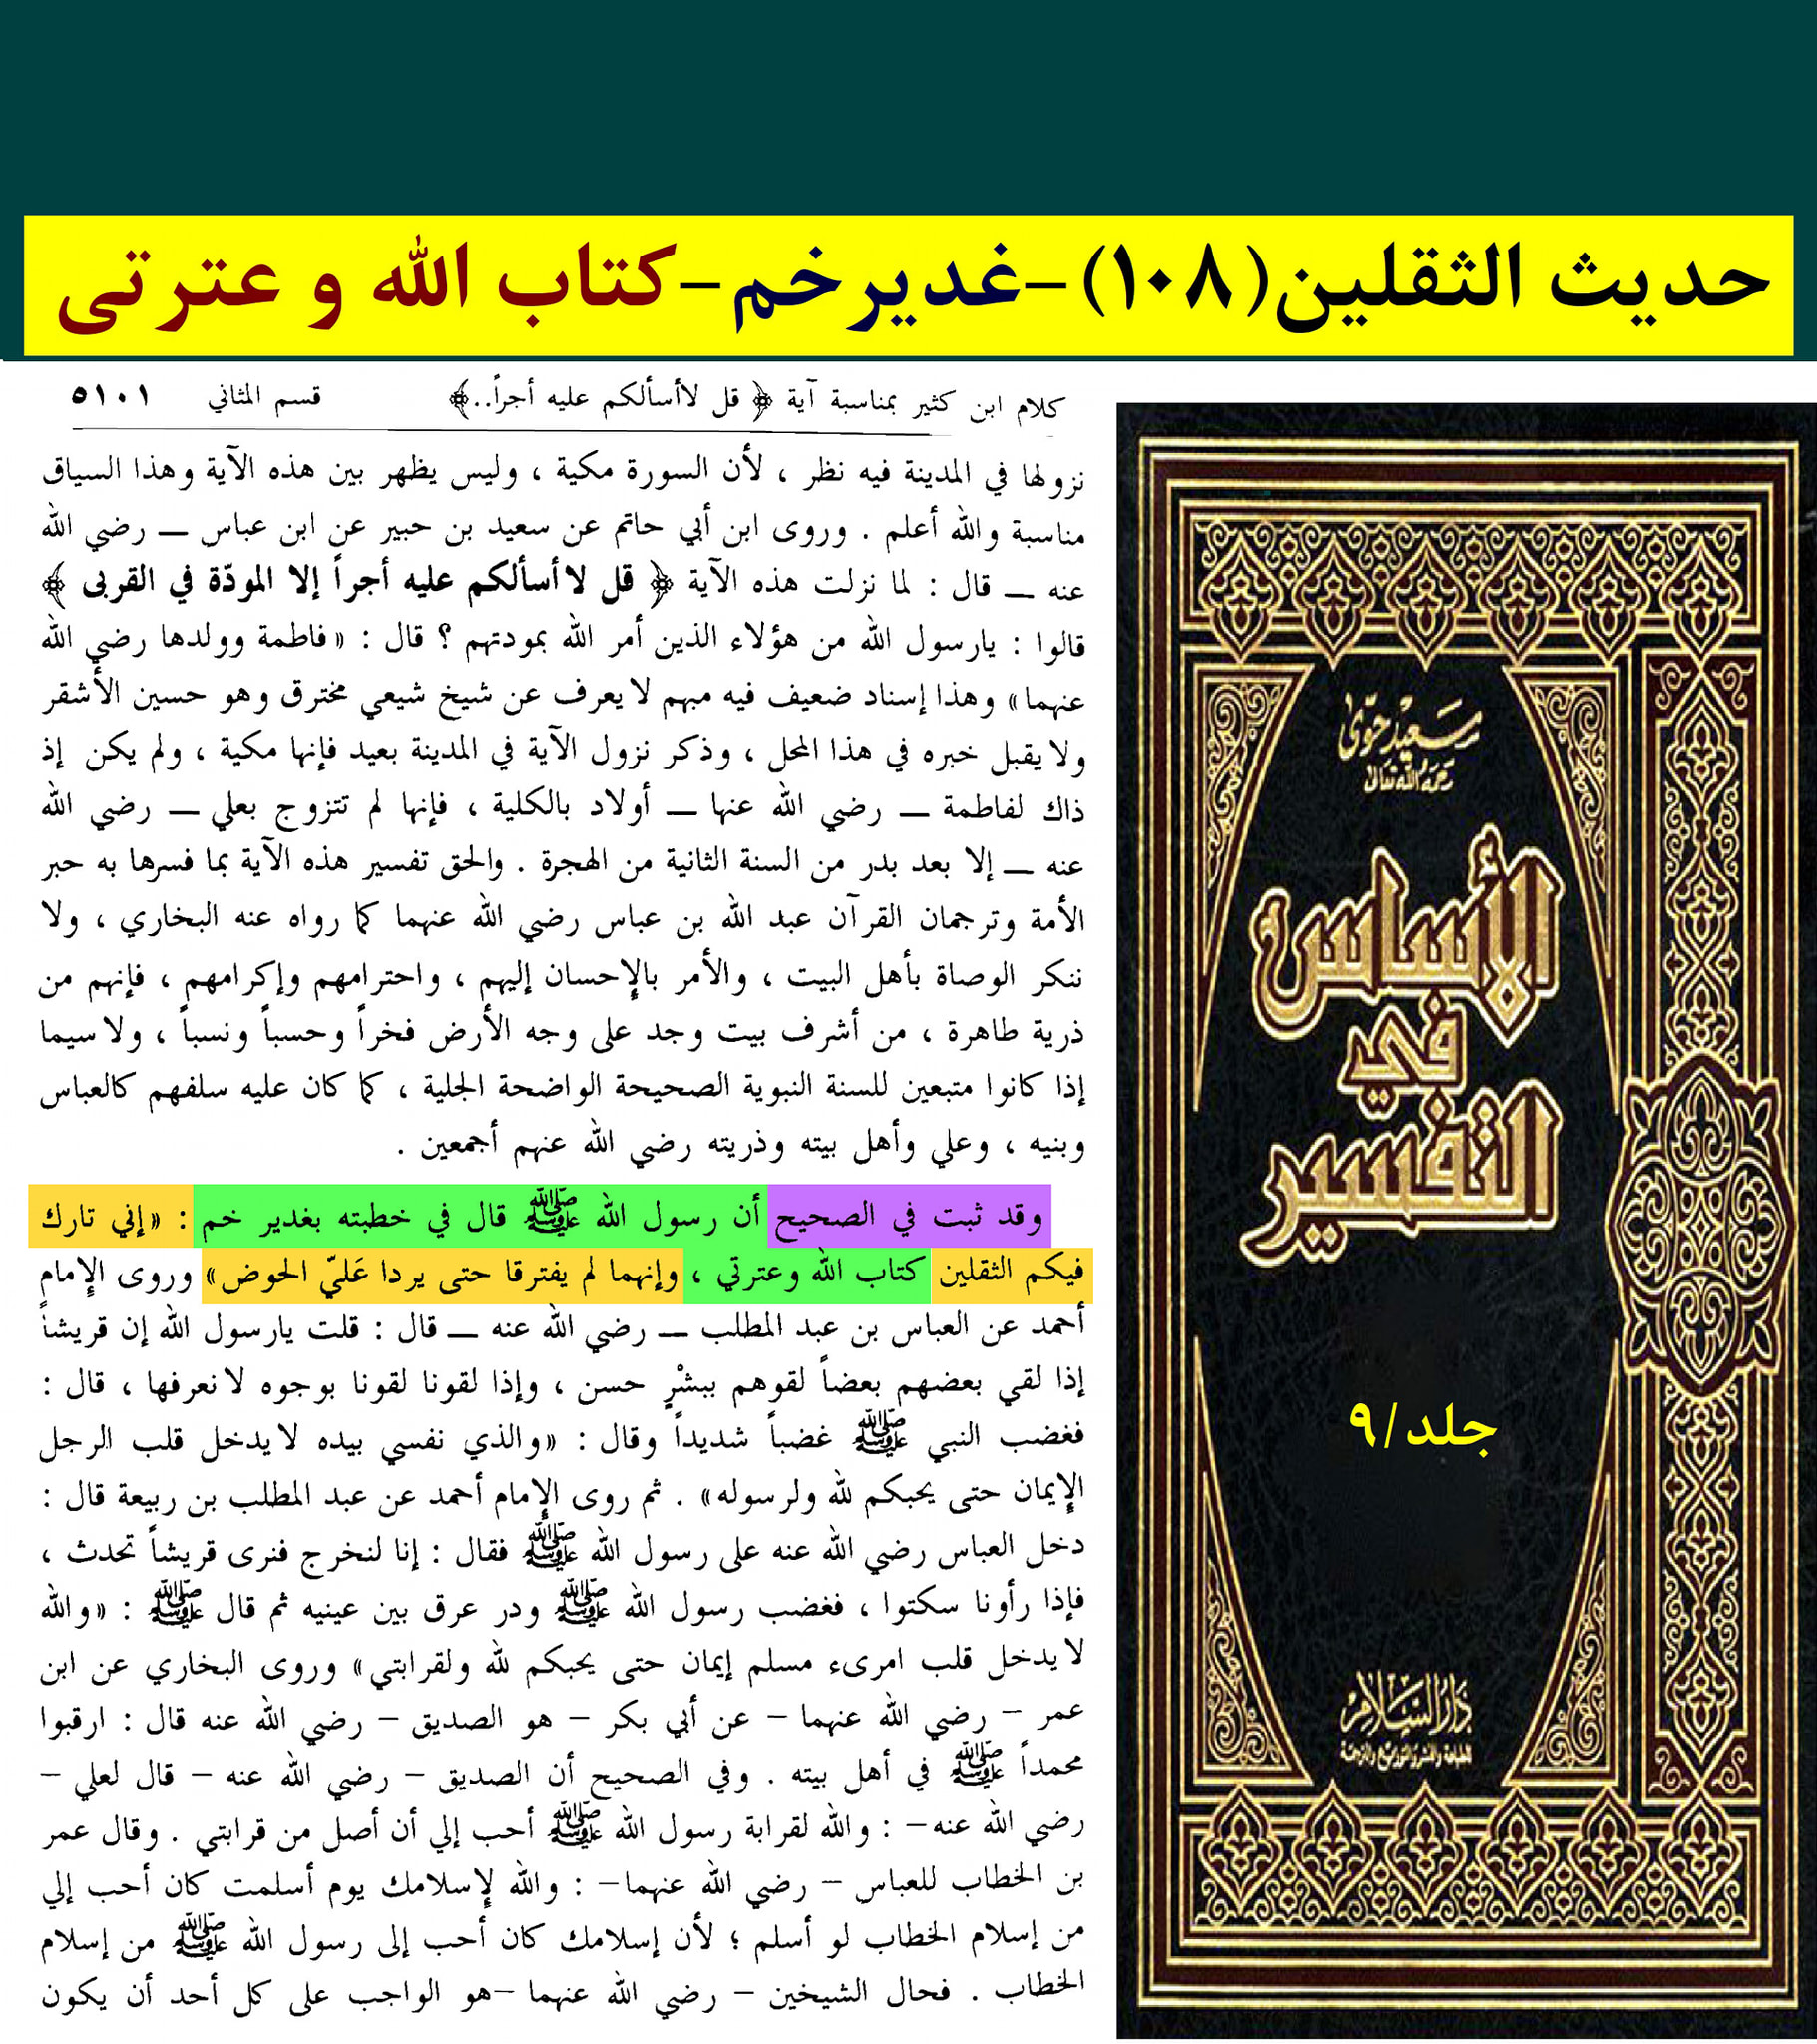 حديث الثقلين(۱۰۸)-غديرخم-كتاب الله و عترتى
كلام ابن كثير بمناسبة آية ﴿ قل لاأسألكم عليه أجراً..﴾ قسم المثاني ٥١٠١
نزولها في المدينة فيه نظر ، لأن السورة مكية ، وليس يظهر بين هذه الآية وهذا السياق
مناسبة والله أعلم . وروى ابن أبي حاتم عن سعيد بن حبير عن ابن عباس ــ رضي الله
عنه ــ قال : لما نزلت هذه الآية ﴿ قل لاأسألكم عليه أجراً إلا المودّة في القربى ﴾
قالوا : يارسول الله من هؤلاء الذين أمر الله بمودتهم ؟ قال : «فاطمة وولدها رضي الله
عنهما» وهذا إسناد ضعيف فيه مبهم لايعرف عن شيخ شيعي مخترق وهو حسين الأشقر
ولايقبل خبره في هذا المحل ، وذكر نزول الآية في المدينة بعيد فإنها مكية ، ولم يكن إذ
ذاك لفاطمة ــ رضي الله عنها ــ أولاد بالكلية ، فإنها لم تتزوج بعلي ــ رضي الله
عنه ــ إلا بعد بدر من السنة الثانية من الهجرة . والحق تفسير هذه الآية بما فسرها به حبر
الأمة وترجمان القرآن عبد الله بن عباس رضي الله عنهما كما رواه عنه البخاري ، ولا
ننكر الوصاة بأهل البيت ، والأمر بالإحسان إليهم ، واحترامهم وإكرامهم ، فإنهم من
ذرية طاهرة ، من أشرف بيت وجد على وجه الأرض فخراً وحسباً ونسباً ، ولاسيما
إذا كانوا متبعين للسنة النبوية الصحيحة الواضحة الجلية ، كما كان عليه سلفهم كالعباس
وبنيه ، وعلي وأهل بيته وذريته رضي الله عنهم أجمعين .
وقد ثبت في الصحيح أن رسول الله ﷺ قال في خطبته بغدير خم : «إني تارك
فيكم الثقلين كتاب الله وعترتي ، وإنهما لم يفترقا حتى يردا عَليّ الحوض» وروى الإمام
أحمد عن العباس بن عبد المطلب ــ رضي الله عنه ــ قال : قلت يارسول الله إن قريشاً
إذا لقي بعضهم بعضاً لقوهم ببشْرٍ حسن ، وإذا لقونا لقونا بوجوه لانعرفها ، قال :
فغضب النبي ﷺ غضباً شديداً وقال : «والذي نفسي بيده لايدخل قلب الرجل
الإيمان حتى يحبكم لله ولرسوله» . ثم روى الإمام أحمد عن عبد المطلب بن ربيعة قال :
دخل العباس رضي الله عنه على رسول الله ﷺ فقال : إنا لنخرج فنرى قريشاً تحدث ،
فإذا رأونا سكتوا ، فغضب رسول الله ﷺ ودر عرق بين عينيه ثم قال ﷺ : «والله
لايدخل قلب امرىء مسلم إيمان حتى يحبكم لله ولقرابتي» وروى البخاري عن ابن
عمر – رضي الله عنهما – عن أبي بكر – هو الصديق – رضي الله عنه قال : ارقبوا
محمداً ﷺ في أهل بيته . وفي الصحيح أن الصديق – رضي الله عنه – قال لعلي –
رضي الله عنه– : والله لقرابة رسول الله ﷺ أحب إلي أن أصل من قرابتي . وقال عمر
بن الخطاب للعباس – رضي الله عنهما– : والله لإسلامك يوم أسلمت كان أحب إلي
من إسلام الخطاب لو أسلم ؛ لأن إسلامك كان أحب إلى رسول الله ﷺ من إسلام
الخطاب . فحال الشيخين – رضي الله عنهما –هو الواجب على كل أحد أن يكون
سعيد حوّى
رحمه الله تعالى
الأساس
في
التفسير
جلد/۹
دار السلام
للطباعة والنشر والتوزيع والترجمة